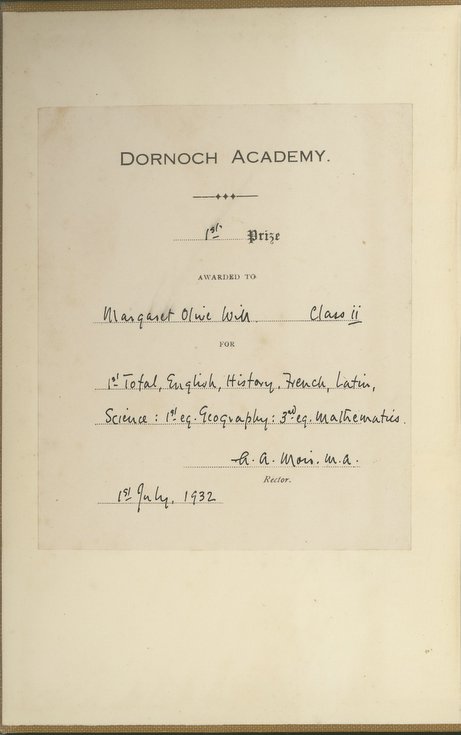 DORNOCH ACADEMY.
1st Prize
AWARDED TO
Margaret Olive Will Class ii
FOR
1st Total, English, History, French, Latin,
Science: 1st eq. Geography: 3rd eq. Mathematics.
A. A. Moir. M.A.
Rector.
1st July, 1932